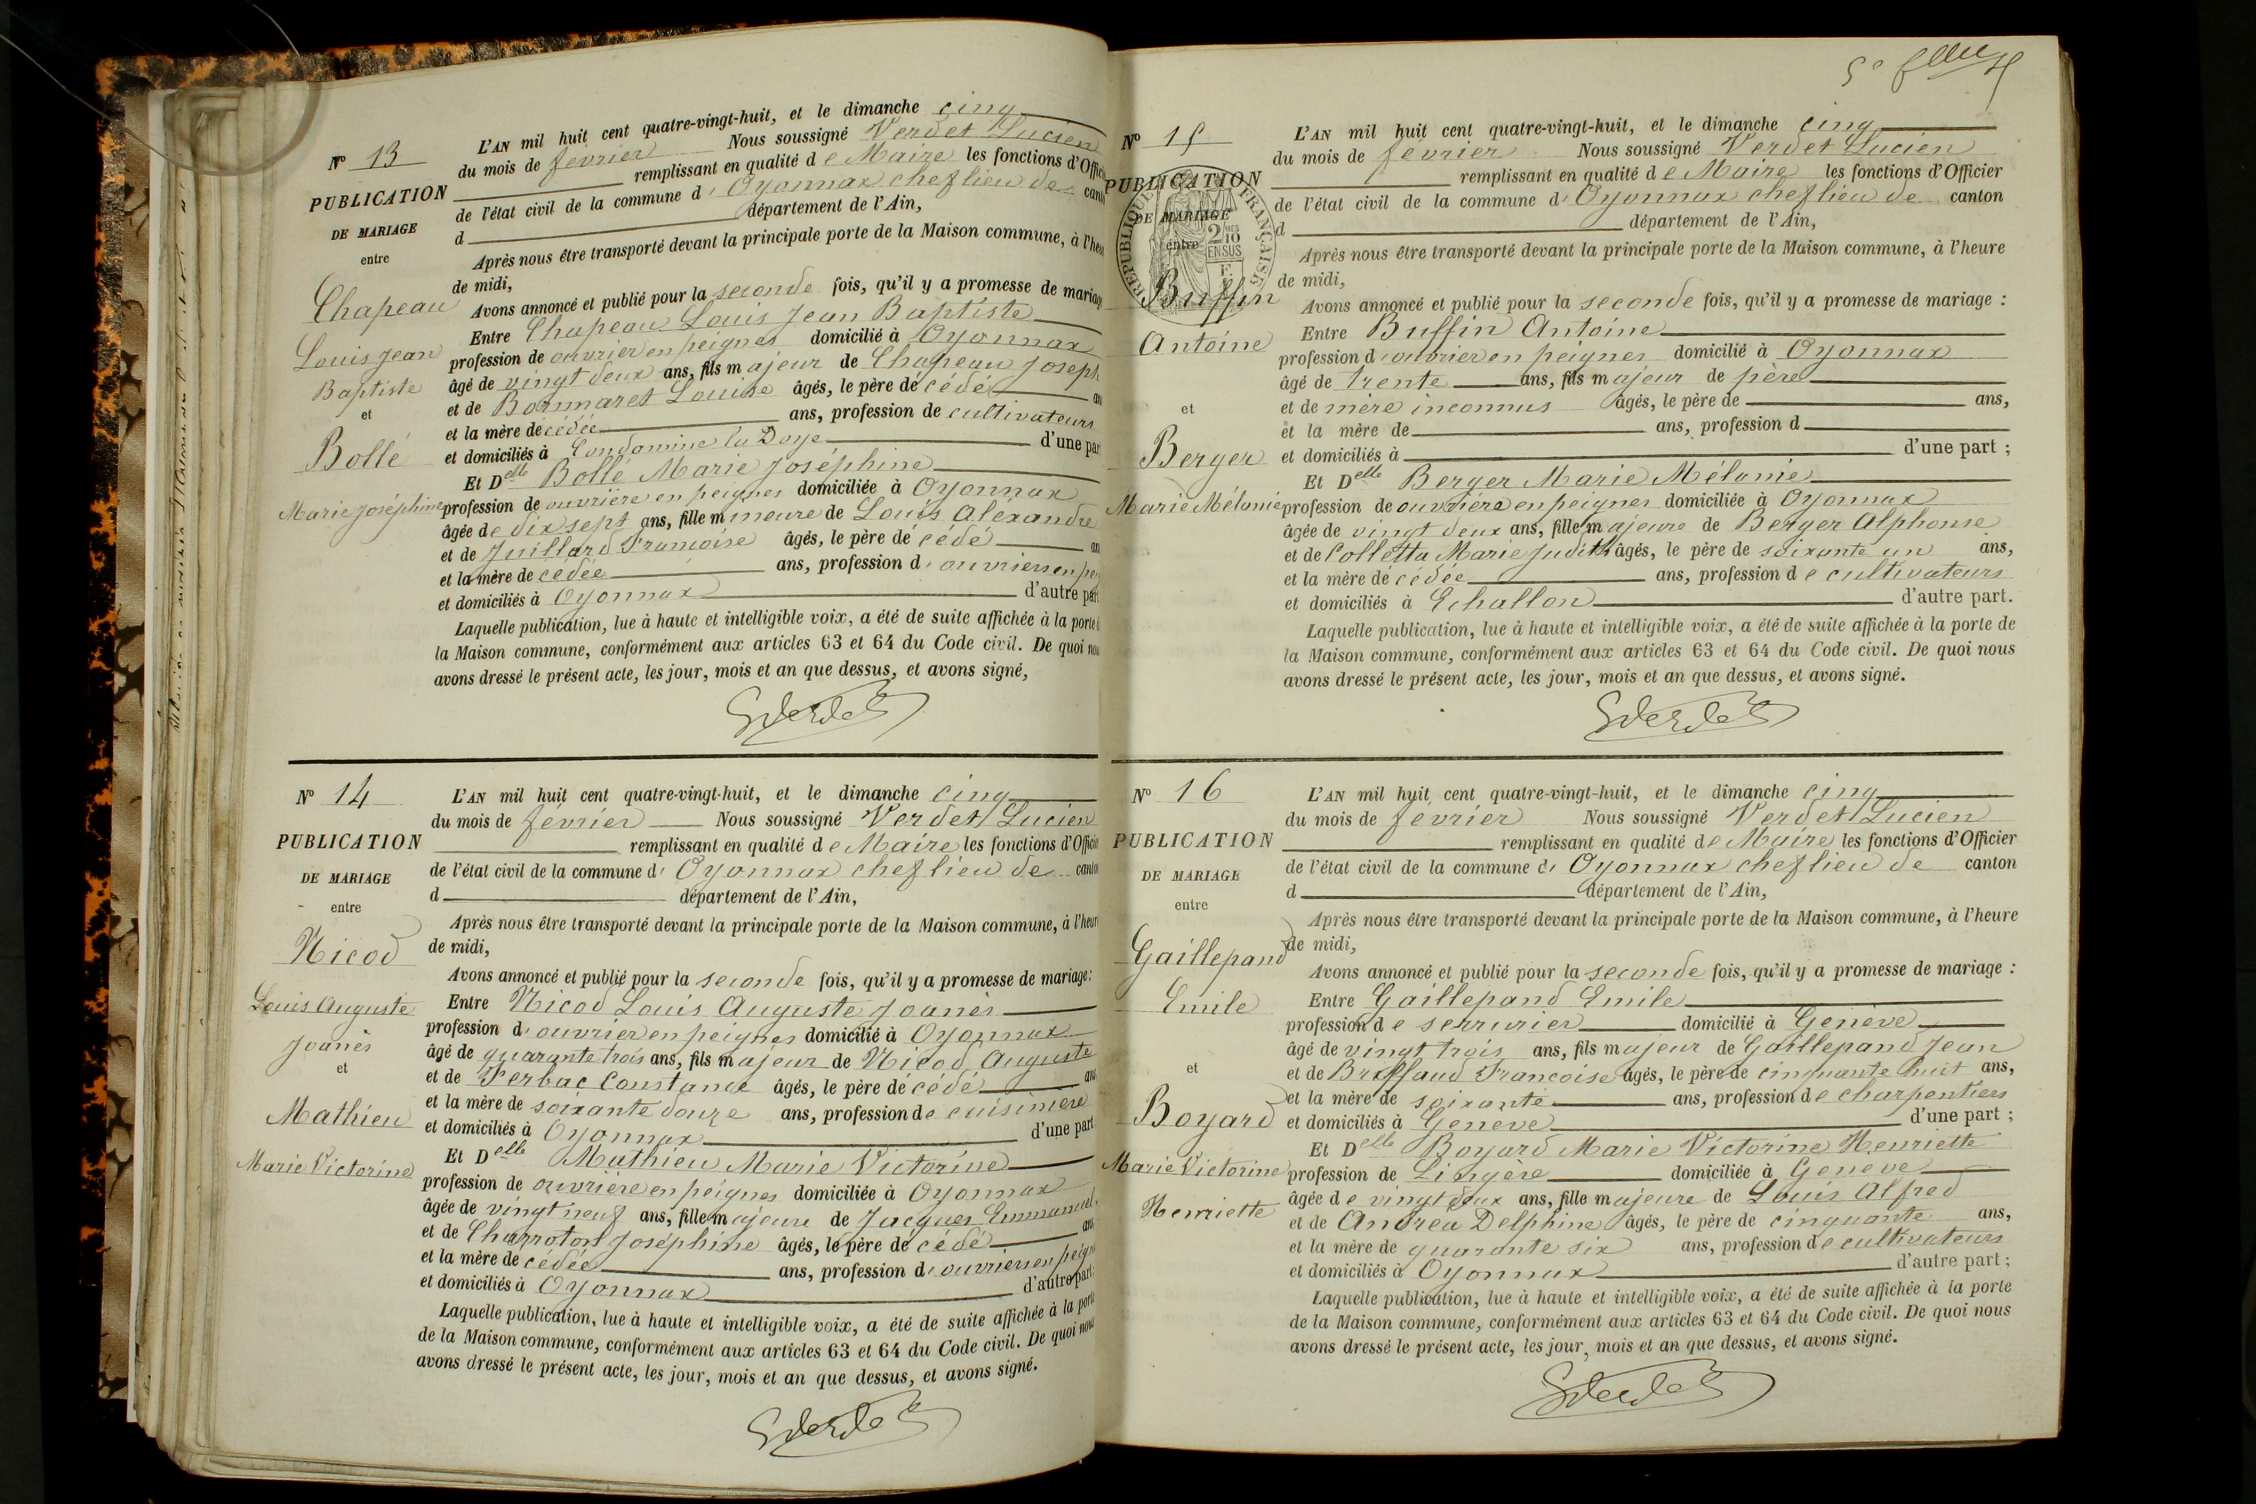 Nº 13
PUBLICATION
DE MARIAGE
entre
Chapeau
Louis Jean
Baptiste
et
Bollé
Marie Joséphine
L'AN mil huit cent quatre-vingt-huit, et le dimanche cinq
du mois de février Nous soussigné Verdet Lucien
remplissant en qualité de Maire les fonctions d'Offici
de l'état civil de la commune d' Oyonnax chef lieu de canto
d département de l'Ain,
Après nous être transporté devant la principale porte de la Maison commune, à l'heu
de midi,
Avons annoncé et publié pour la seconde fois, qu'il y a promesse de mariag
Entre Chapeau Louis Jean Baptiste
profession de ouvrier en peignes domicilié à Oyonnax
âgé de vingt deux ans, fils majeur de Chapeau Joseph
et de Bonmaret Louise âgés, le père décédé an
et la mère décédée ans, profession de cultivateurs
et domiciliés à Condamine la Doye d'une par
Et Delle Bollé Marie Joséphine
profession de ouvrière en peignes domiciliée à Oyonnax
âgée de dix sept ans, fille mineure de Louis Aléxandre
et de Juillard Françoise âgés, le père décédé an
et la mère de cédée ans, profession d'ouvriers en pei
et domiciliés à Oyonnax d'autre part
Laquelle publication, lue à haute et intelligible voix, a été de suite affichée à la porte d
la Maison commune, conformément aux articles 63 et 64 du Code civil. De quoi nou
avons dressé le présent acte, les jour, mois et an que dessus, et avons signé,
Nº 14
PUBLICATION
DE MARIAGE
entre
Nicod
Louis Auguste
Joanès
et
Mathieu
Marie Victorine
L'AN mil huit cent quatre-vingt-huit, et le dimanche cinq
du mois de février Nous soussigné Verdet Lucien
remplissant en qualité de Maire les fonctions d'Offici
de l'état civil de la commune d' Oyonnax chef lieu de canto
d département de l'Ain,
Après nous être transporté devant la principale porte de la Maison commune, à l'heur
de midi,
Avons annoncé et publié pour la seconde fois, qu'il y a promesse de mariage:
Entre Nicod Louis Auguste Joanès
profession d'ouvrier en peignes domicilié à Oyonnax
âgé de quarante trois ans, fils majeur de Nicod Auguste
et de Perbac Constance âgés, le père décédé ans
et la mère de soixante douze ans, profession de cuisinière
et domiciliés à Oyonnax d'une part
Et Delle Mathieu Marie Victorine
profession de ouvrière en peignes domiciliée à Oyonnax
âgée de vingt neuf ans, fille majeure de Jacques Emmanuel
et de Charroton Joséphine âgés, le père décédé an
et la mère de cédée ans, profession d'ouvriers en peign
et domiciliés à Oyonnax d'autre part.
Laquelle publication, lue à haute et intelligible voix, a été de suite affichée à la porte
de la Maison commune, conformément aux articles 63 et 64 du Code civil. De quoi nous
avons dressé le présent acte, les jour, mois et an que dessus, et avons signé.
Nº 15
PUBLICATION
DE MARIAGE
entre
RÉPUBLIQUE FRANÇAISE
2/10 EN SUS
Buffin
Antoine
et
Berger
Marie Mélanie
L'AN mil huit cent quatre-vingt-huit, et le dimanche cinq
du mois de février Nous soussigné Verdet Lucien
remplissant en qualité de Maire les fonctions d'Officier
de l'état civil de la commune d' Oyonnax chef lieu de canton
d département de l'Ain,
Après nous être transporté devant la principale porte de la Maison commune, à l'heure
de midi,
Avons annoncé et publié pour la seconde fois, qu'il y a promesse de mariage :
Entre Buffin Antoine
profession d'ouvrier en peignes domicilié à Oyonnax
âgé de trente ans, fils majeur de père
et de mère inconnus âgés, le père de ans,
et la mère de ans, profession d
et domiciliés à d'une part ;
Et Delle Berger Marie Mélanie
profession de ouvrière en peignes domiciliée à Oyonnax
âgée de vingt deux ans, fille majeure de Berger Alphonse
et de Colletta Marie Judith âgés, le père de soixante un ans,
et la mère décédée ans, profession de cultivateurs
et domiciliés à Echallon d'autre part.
Laquelle publication, lue à haute et intelligible voix, a été de suite affichée à la porte de
la Maison commune, conformément aux articles 63 et 64 du Code civil. De quoi nous
avons dressé le présent acte, les jour, mois et an que dessus, et avons signé.
Nº 16
PUBLICATION
DE MARIAGE
entre
Gaillepand
Emile
et
Boyard
Marie Victorine
Henriette
L'AN mil huit cent quatre-vingt-huit, et le dimanche cinq
du mois de février Nous soussigné Verdet Lucien
remplissant en qualité de Maire les fonctions d'Officier
de l'état civil de la commune d' Oyonnax chef lieu de canton
d département de l'Ain,
Après nous être transporté devant la principale porte de la Maison commune, à l'heure
de midi,
Avons annoncé et publié pour la seconde fois, qu'il y a promesse de mariage :
Entre Gaillepand Emile
profession de serrurier domicilié à Genève
âgé de vingt trois ans, fils majeur de Gaillepand Jean
et de Françoise âgés, le père de cinquante huit ans,
et la mère de soixante ans, profession de charpentiers
et domiciliés à Genève d'une part ;
Et Delle Boyard Marie Victorine Henriette
profession de Lingère domiciliée à Genève
âgée de vingt deux ans, fille majeure de Louis Alfred
et de Andréa Delphine âgés, le père de cinquante ans,
et la mère de quarante six ans, profession de cultivateurs
et domiciliés à Oyonnax d'autre part ;
Laquelle publication, lue à haute et intelligible voix, a été de suite affichée à la porte
de la Maison commune, conformément aux articles 63 et 64 du Code civil. De quoi nous
avons dressé le présent acte, les jour, mois et an que dessus, et avons signé.